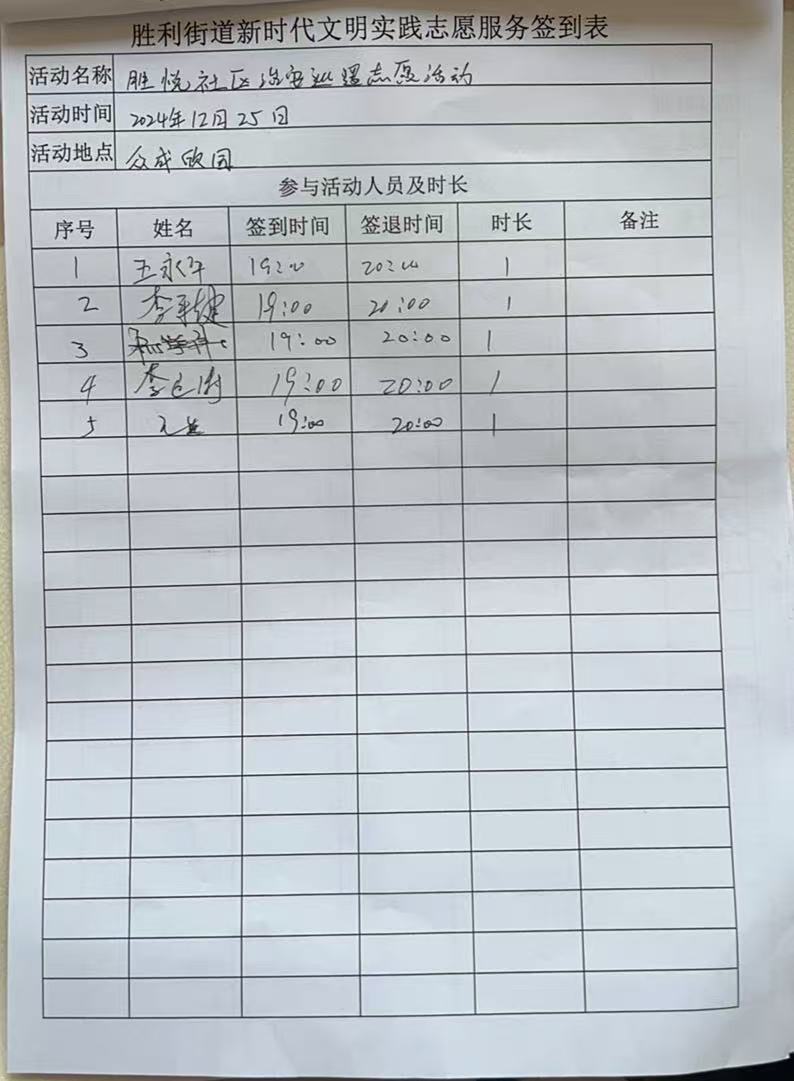 胜利街道新时代文明实践志愿服务签到表
活动名称 胜悦社区治安巡逻志愿活动
活动时间 2024年12月25日
活动地点 众成欧园
参与活动人员及时长
序号 姓名 签到时间 签退时间 时长 备注
1 王永 19:00 20:00 1
2 李 健 19:00 20:00 1
3 19:00 20:00 1
4 李 19:00 20:00 1
5 19:00 20:00 1